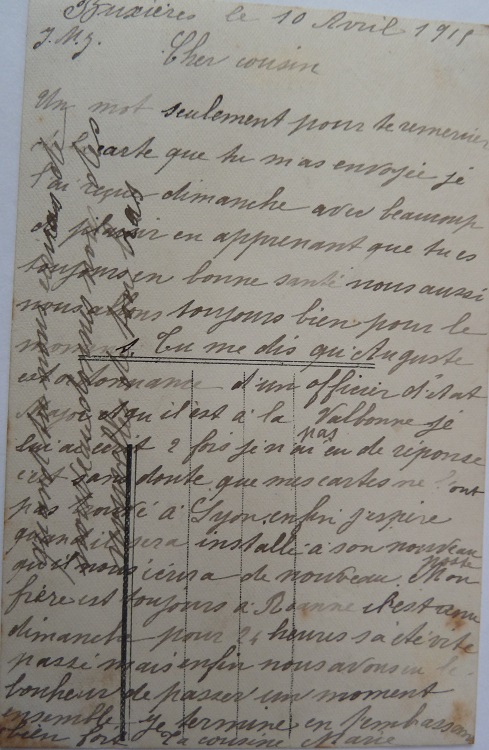 Buxières le 10 Avril 1915
J.M.J.
Cher cousin
Un mot seulement pour te remercier
carte que tu mas envoyée je
l'ai reçue dimanche avec beaucoup
de plaisir en apprenant que tu es
toujours en bonne santé nous aussi
nous allons toujours bien pour le
moment. Tu me dis qu'Auguste
est ordonnance d'un officier d'Etat
Major et qu'il est à la Valbonne je
lui ai écrit 2 fois je n'ai pas eu de réponse
c'est sans doute que mes cartes ne l'ont
pas trouvé à Lyon enfin j'espère
quand il sera installé à son nouveau
poste qu'il nous écrira de nouveau. Mon
frère est toujours à Roanne il est venu
dimanche pour 24 heures sa été vite
passé mais enfin nous avons eu le
bonheur de passer un moment
ensemble Je termine en t'embrassant
bien fort Ta cousine Marie